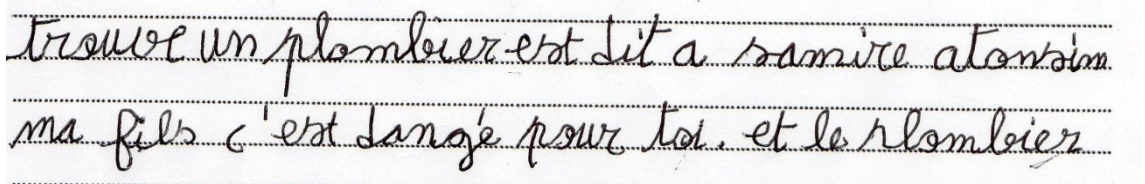 trouve un plombier est dit a samire atonsim
ma fils c'est dangé pour toi. et le plombier